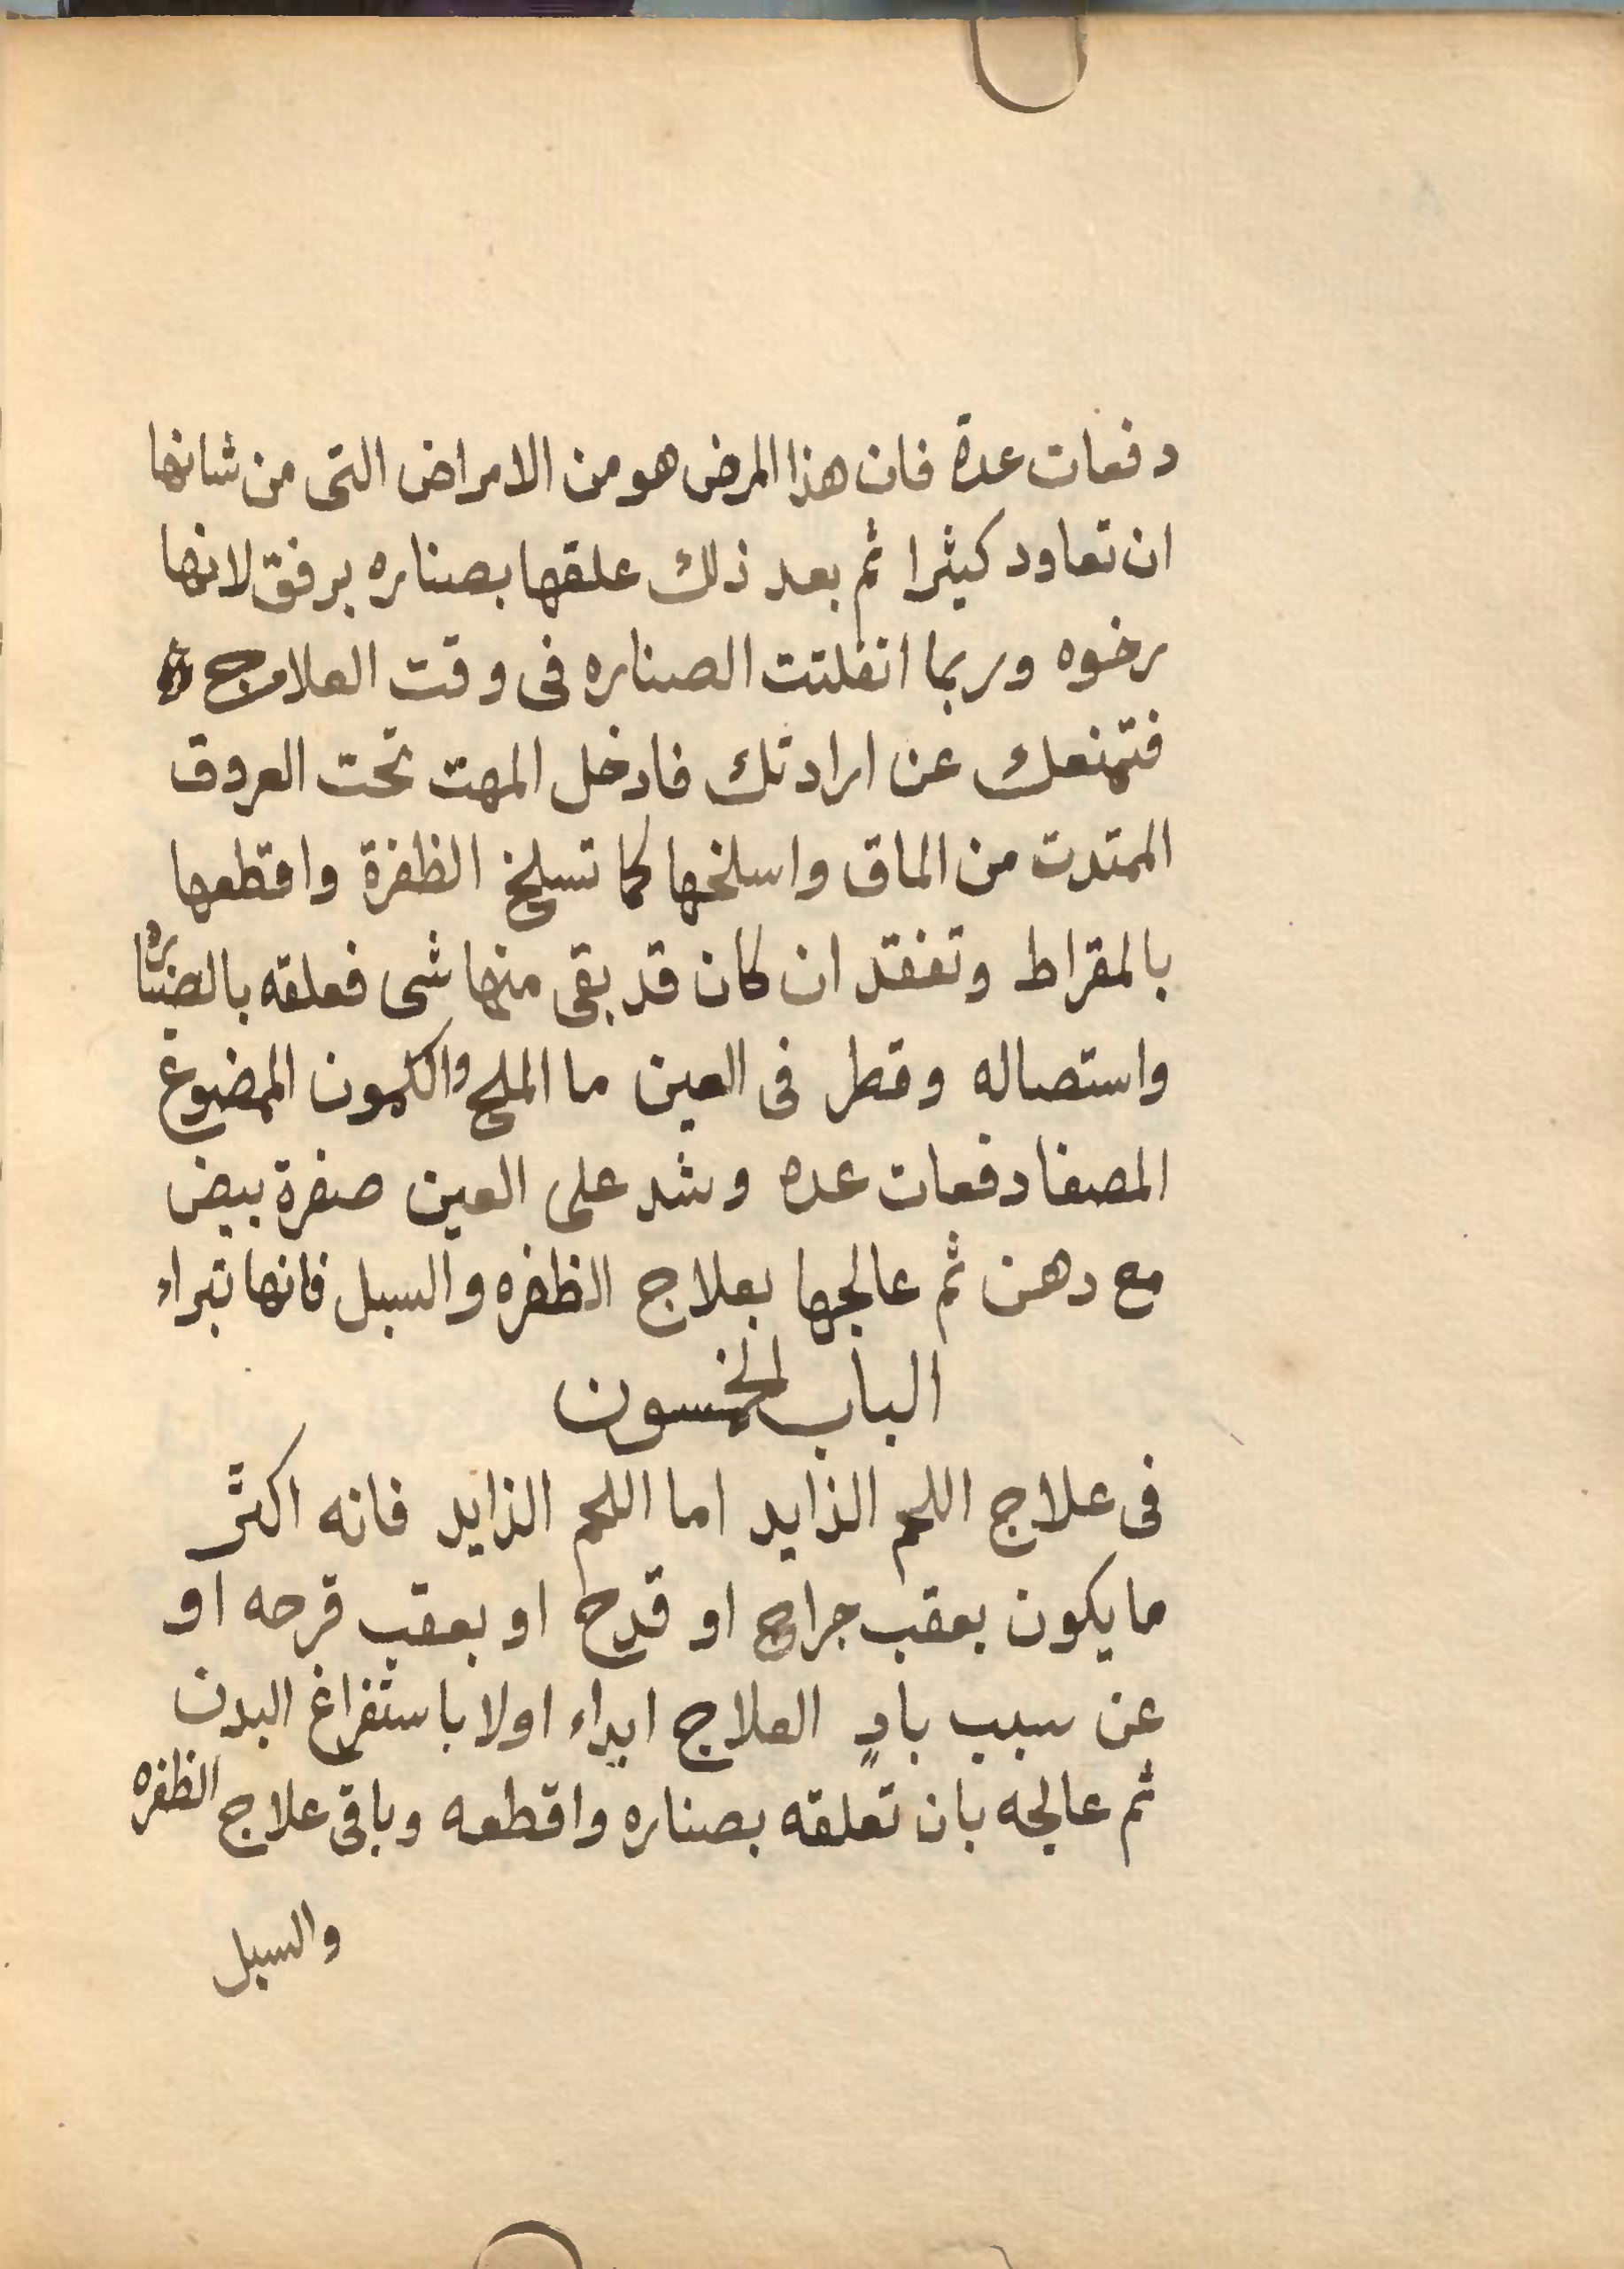 دفعات عدة فان هذا المرض هو من الامراض التى من شانها
ان تعاود كيثرا ثم بعد ذلك علقها بصناره برفق لانها
رخوه وربما انفلتت الصناره فى وقت العلاج
فتمنعك عن ارادتك فادخل المهت تحت العروق
الممتدت من الماق واسلخها كما تسلخ الظفرة واقطعها
بالمقراط وتفقد ان كان قد بقى منها شى فعلقه بالصناره
واستصاله وقطر فى العين ما الملح والكمون الممضوغ
المصفا دفعات عده وشد على العين صفرة بيض
مع دهن ثم عالجها بعلاج الظفره والسبل فانها تبراء
الباب الخمسون
فى علاج اللحم الذايد اما اللحم الذايد فانه اكثر
ما يكون بعقب جراح او قدح او بعقب قرحه او
عن سبب بادٍ العلاج ابداء اولا باستفراغ البدن
ثم عالجه بان تعلقه بصناره واقطعه وباقى علاج الظفره
والسبل